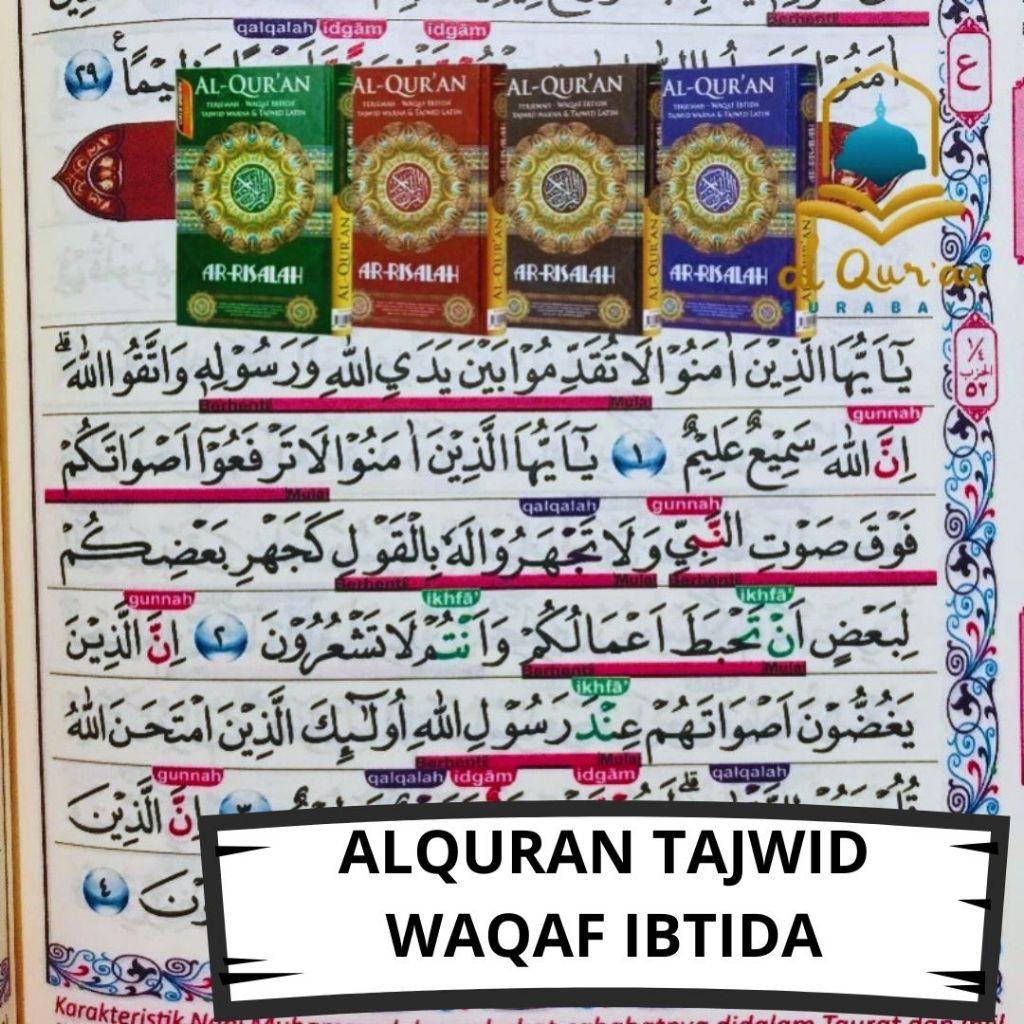 Berhenti
qalqalah idgām idgām
ٱمَنُوْا
٢٩
ع
AL-QUR'AN
TERJEMAH - WAQAF IBTIDA
TAJWID WARNA & TAJWID LATIN
AR-RISALAH
AL-QUR'AN
AL-QUR'AN
TERJEMAH - WAQAF IBTIDA
TAJWID WARNA & TAJWID LATIN
AR-RISALAH
AL-QUR'AN
AL-QUR'AN
TERJEMAH - WAQAF IBTIDA
TAJWID WARNA & TAJWID LATIN
AR-RISALAH
AL-QUR'AN
AL-QUR'AN
TERJEMAH - WAQAF IBTIDA
TAJWID WARNA & TAJWID LATIN
AR-RISALAH
al Qur'an
SURABAYA
١/٤
الحزب
٥٢
يٰٓاَيُّهَا الَّذِيْنَ اٰمَنُوْا لَا تُقَدِّمُوْا بَيْنَ يَدَيِ اللّٰهِ وَرَسُوْلِهٖ وَاتَّقُوا اللّٰهَ ۗ
Berhenti Mulai
gunnah
اِنَّ اللّٰهَ سَمِيْعٌ عَلِيْمٌ ١ يٰٓاَيُّهَا الَّذِيْنَ اٰمَنُوْا لَا تَرْفَعُوْٓا اَصْوَاتَكُمْ
Mulai
qalqalah gunnah
فَوْقَ صَوْتِ النَّبِيِّ وَلَا تَجْهَرُوْا لَهٗ بِالْقَوْلِ كَجَهْرِ بَعْضِكُمْ
Berhenti Mulai Berhenti
gunnah ikhfā' ikhfā'
لِبَعْضٍ اَنْ تَحْبَطَ اَعْمَالُكُمْ وَاَنْتُمْ لَا تَشْعُرُوْنَ ٢ اِنَّ الَّذِيْنَ
Berhenti Mulai
ikhfā'
يَغُضُّوْنَ اَصْوَاتَهُمْ عِنْدَ رَسُوْلِ اللّٰهِ اُولٰۤىِٕكَ الَّذِيْنَ امْتَحَنَ اللّٰهُ
Berhenti Mulai
gunnah qalqalah idgām idgām qalqalah
اِنَّ الَّذِيْنَ
٤
ALQURAN TAJWID
WAQAF IBTIDA
Karakteristik